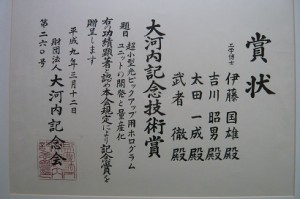 賞状
工学博士
伊藤国雄殿
吉川昭男殿
太田一成殿
武者徹殿
大河内記念技術賞
題目 超小型光ピックアップ用ホログラム
ユニットの開発と量産化
右の功績顕著と認め本会規定により記念賞を
贈呈します
平成九年三月十二日
財団法人 大河内記念会
第二六〇号